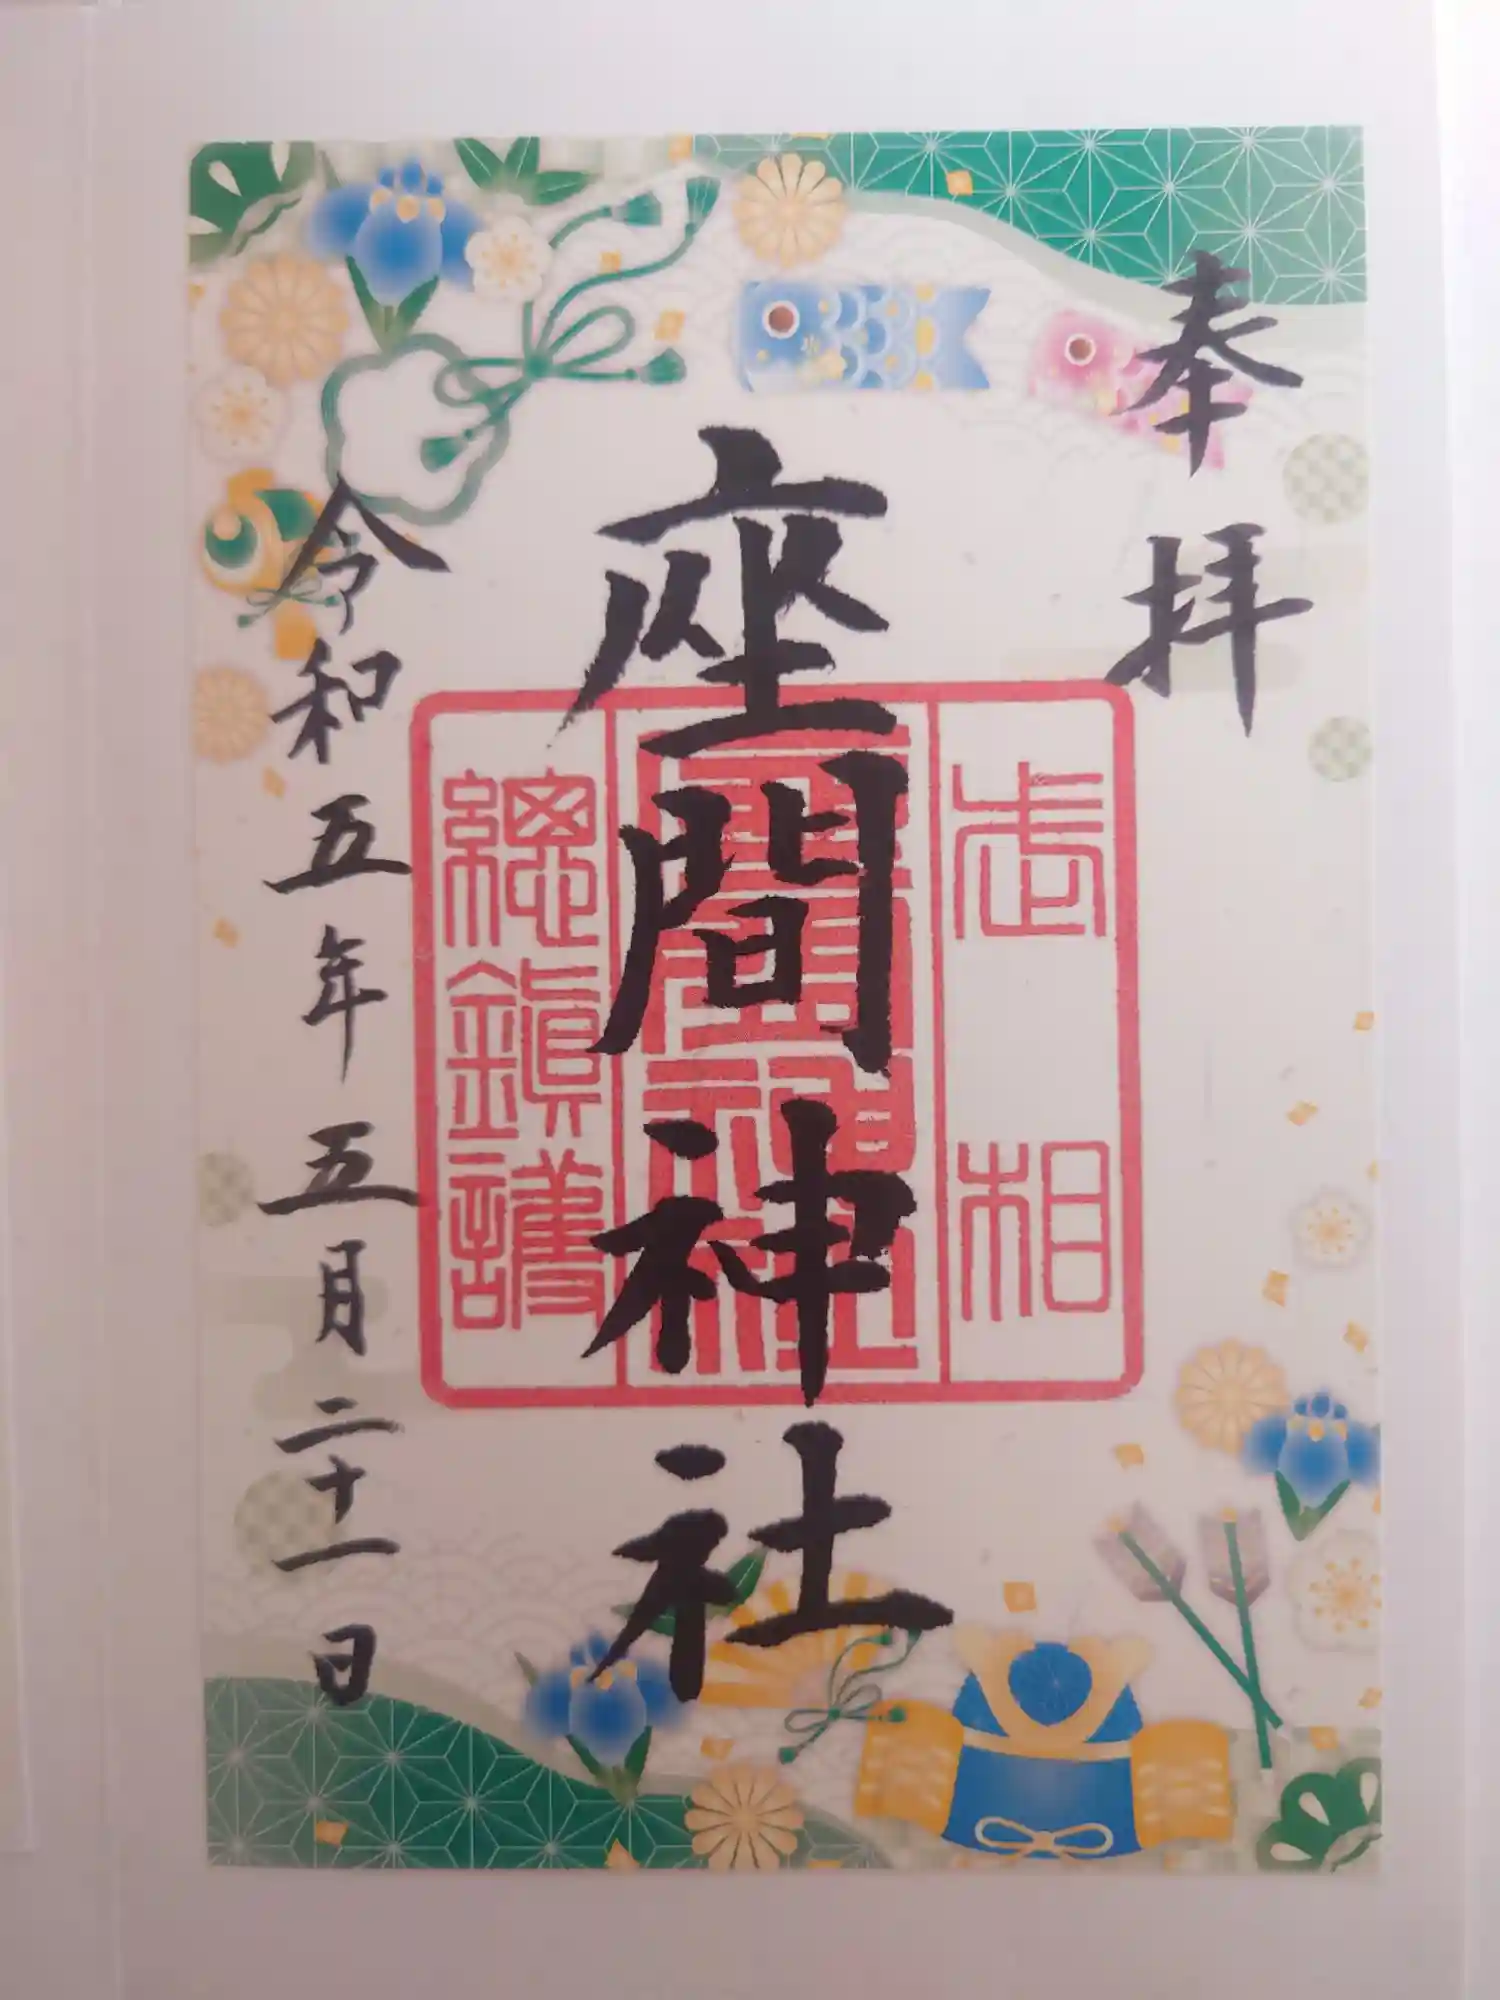 奉拝
武相
座間神社
總鎮護
令和五年五月二十一日